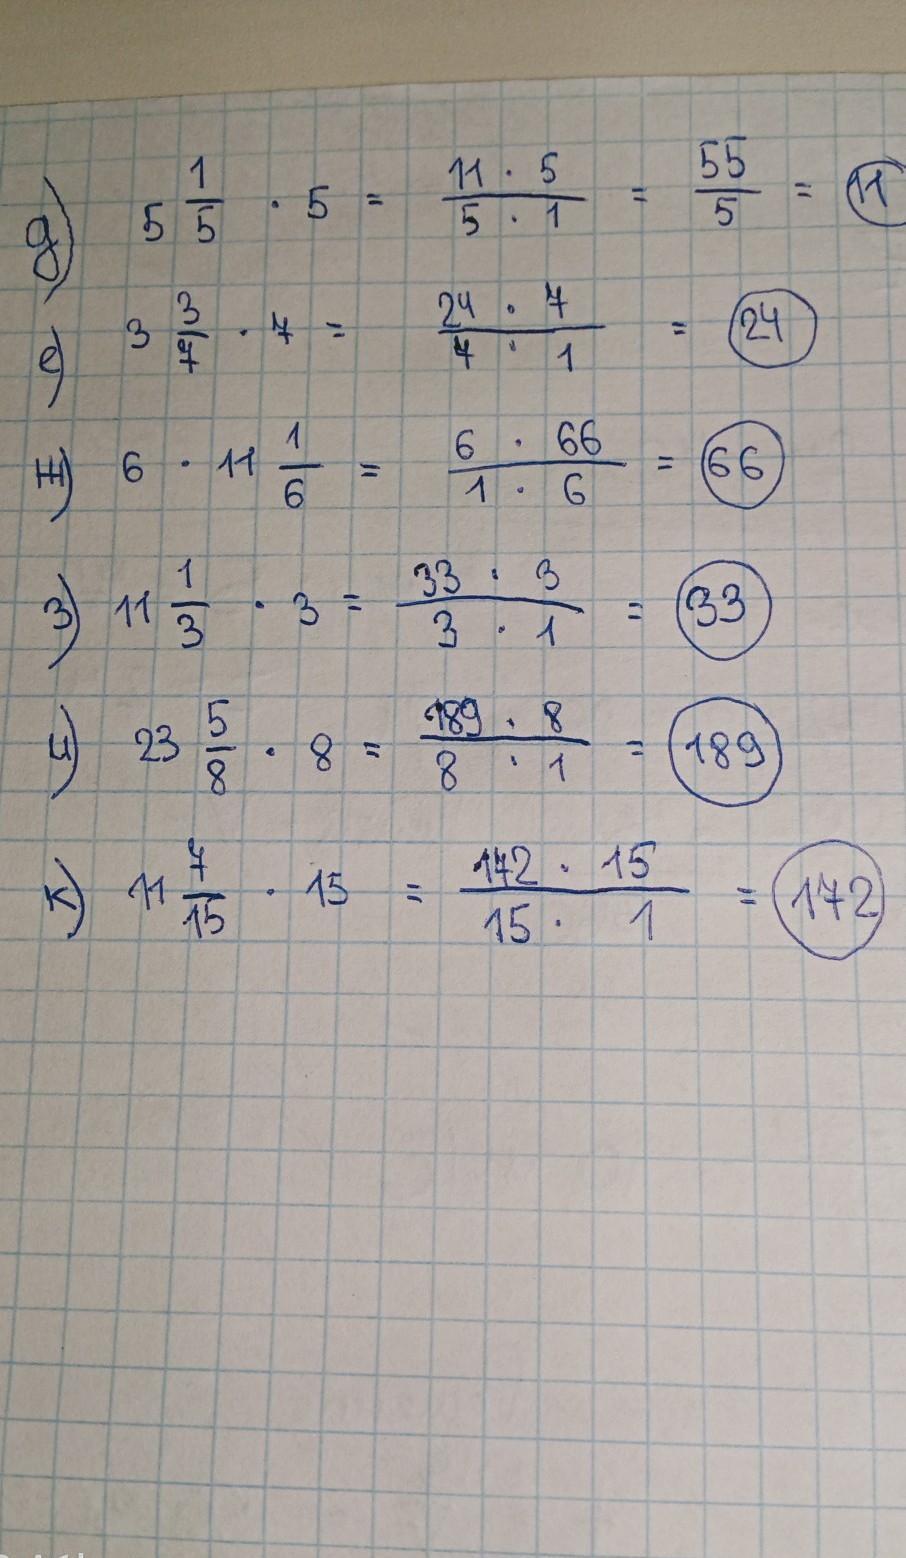 д) 5 1/5 · 5 = 11 · 5 / 5 · 1 = 55/5 = 11
е) 3 3/7 · 7 = 24 · 7 / 7 · 1 = 24
ж) 6 · 11 1/6 = 6 · 66 / 1 · 6 = 66
з) 11 1/3 · 3 = 33 · 3 / 3 · 1 = 33
и) 23 5/8 · 8 = 189 · 8 / 8 · 1 = 189
к) 11 7/15 · 15 = 172 · 15 / 15 · 1 = 172